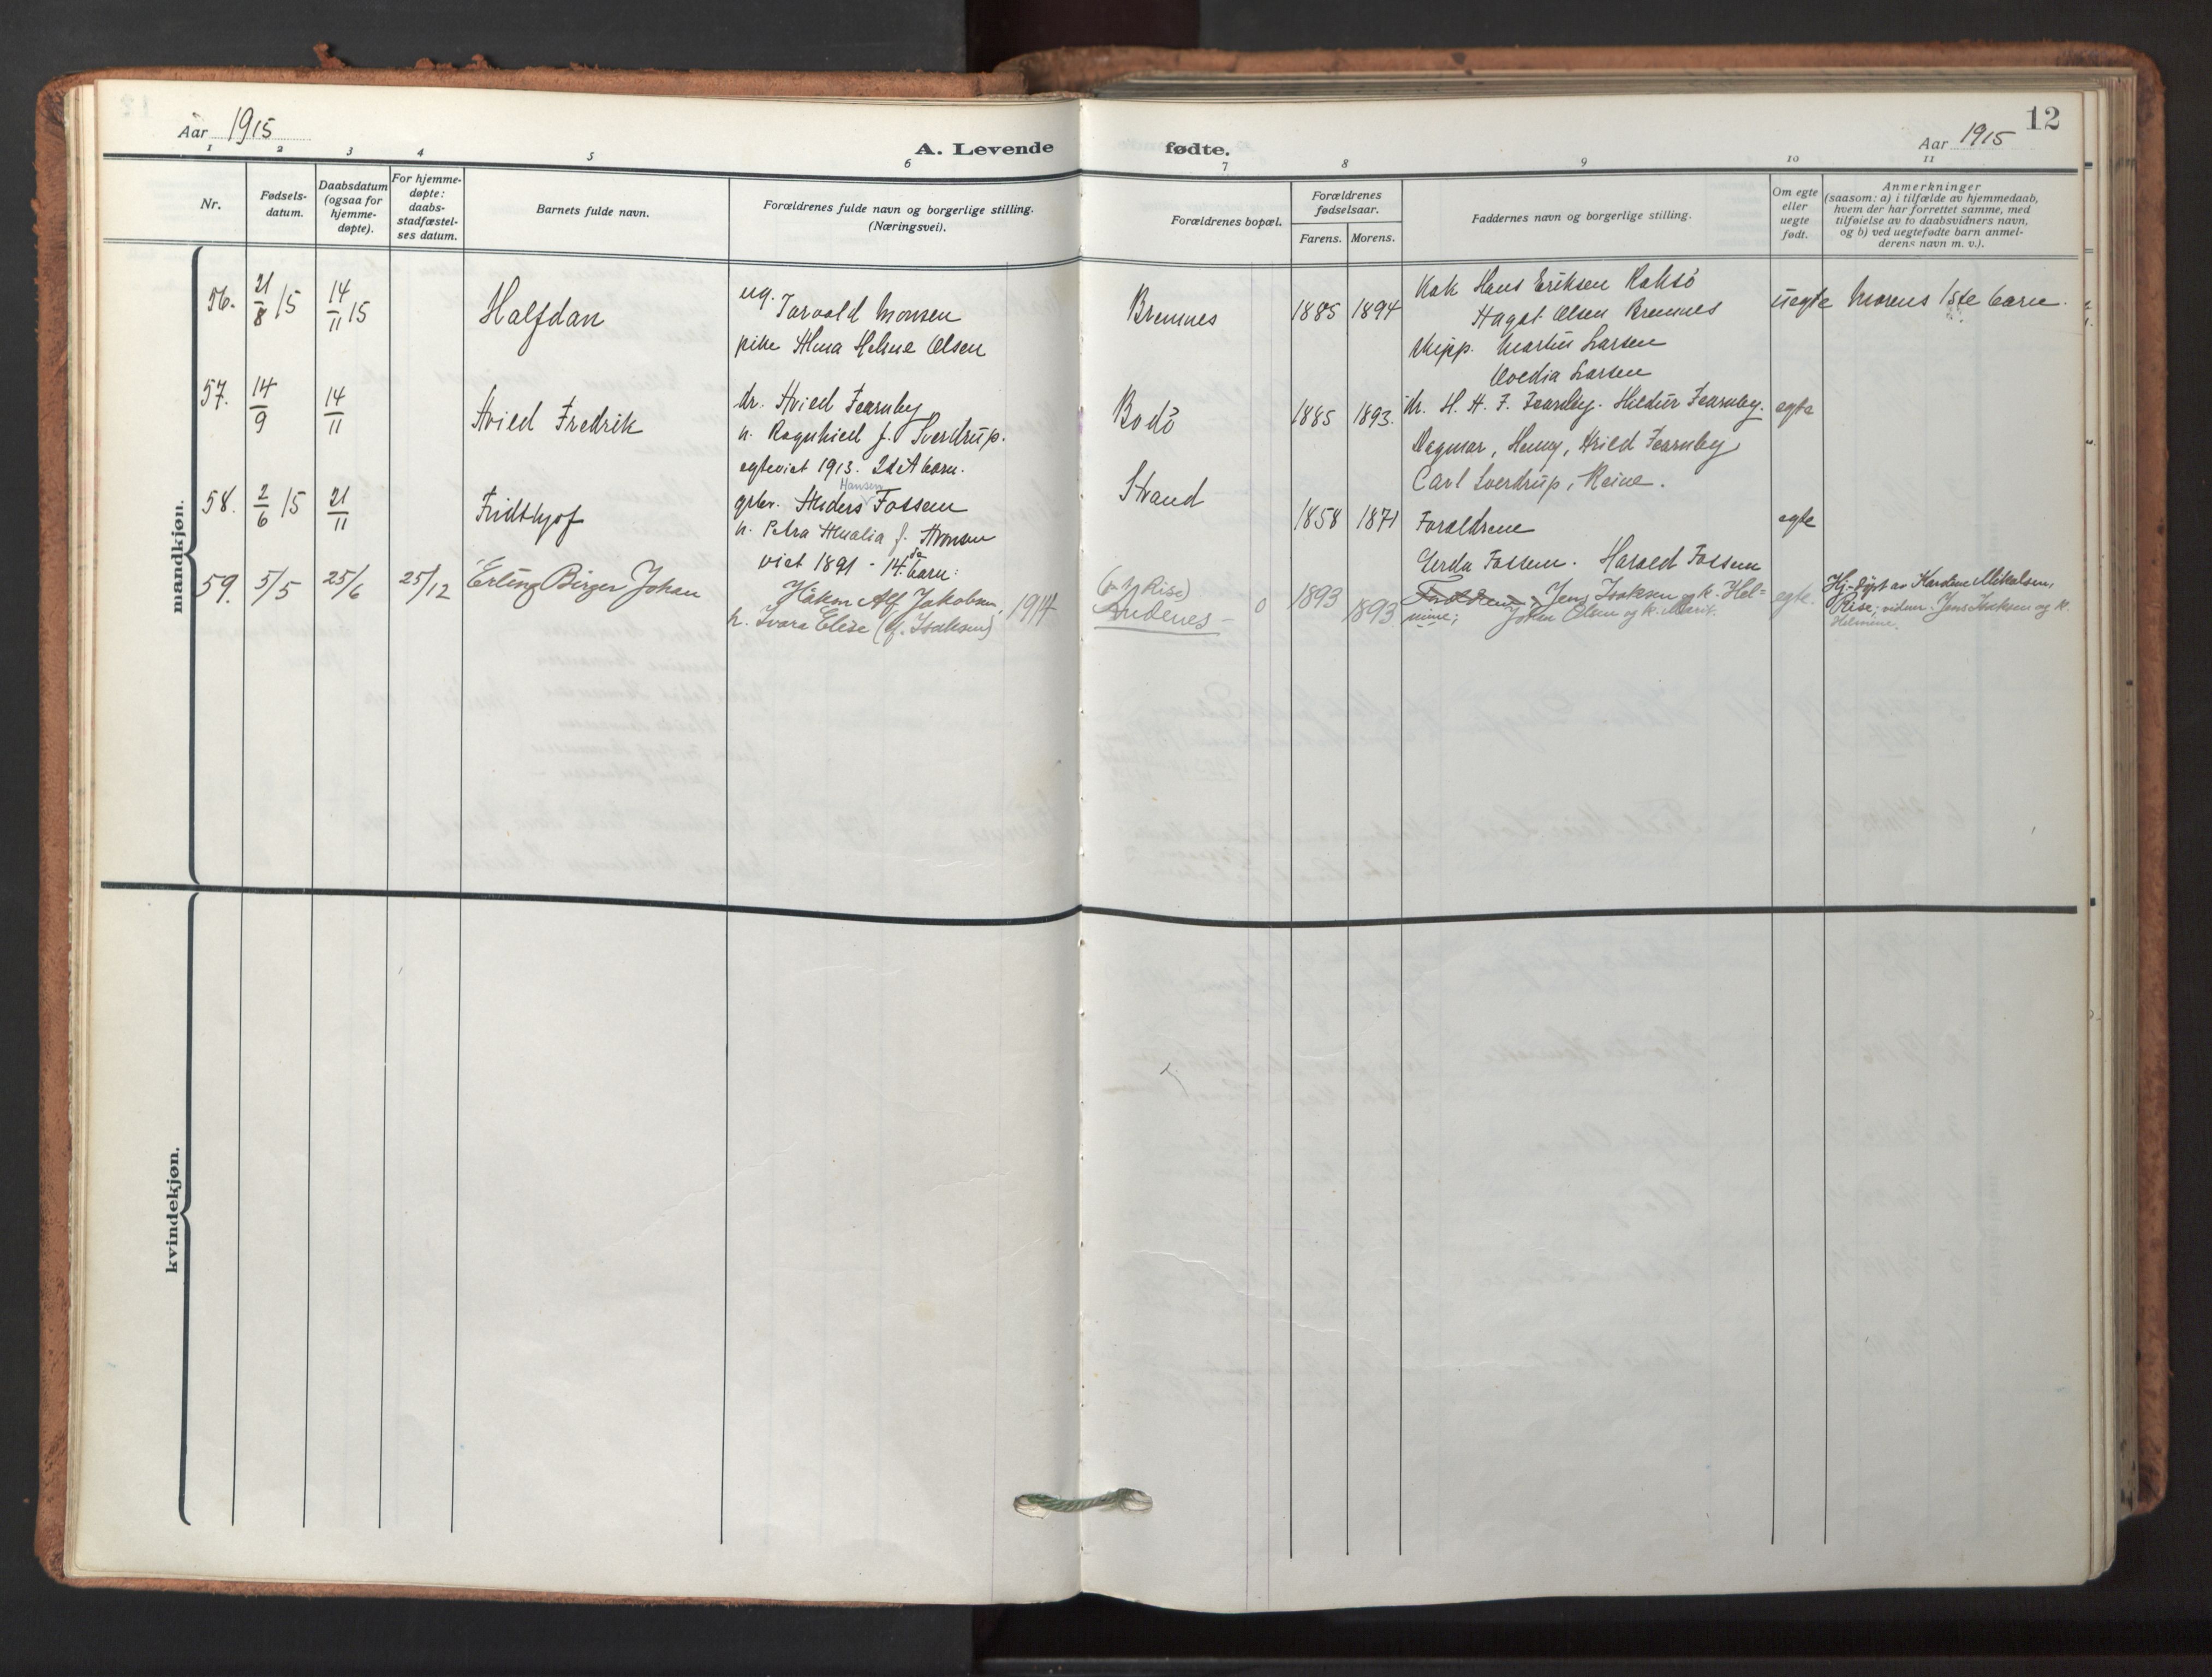 Aar 1915
A. Levende fødte.
Aar 1915
12
1 2 3 4 5 6 7 8 9 10 11
Nr.
Fødsels-
datum.
Daabsdatum
(ogsaa for
hjemme-
døpte).
For hjemme-
døpte:
daabs-
stadfæstel-
ses datum.
Barnets fulde navn.
Forældrenes fulde navn og borgerlige stilling.
(Næringsvei).
Forældrenes bopæl.
Forældrenes
fødselsaar.
Farens. Morens.
Faddernes navn og borgerlige stilling.
Om egte
eller
uegte
født.
Anmerkninger
(saasom: a) i tilfælde av hjemmedaab,
hvem der har forrettet samme, med
tilføielse av to daabsvidners navn,
og b) ved uegtefødte barn anmel-
derens navn m. v.).
mandkjøn.
56. 21/8 15 14/11 15 Halfdan
ug. Torvald Monsen
pike Alma Helene Olsen
Bremnes 1885 1894
Hans Eriksen
Olsen Bremnes
Martin Larsen
Larsen
uegte Morens 1ste barn.
57. 14/9 14/11 Arild Fredrik
dr. Arild Fearnley
h. Ragnhild f. Sverdrup.
egteviet 1913. 2det barn.
Bodö 1885 1893.
dr. H. A. F. Fearnley. Hildur Fearnley.
Dagmar, Henny, Arild Fearnley
Carl Sverdrup, Reine.
egte
58. 2/6 15 21/11 Fridthjof
Hansen
gbr. Anders Fossem
h. Petra Amalia f. Aronsen
viet 1891 - 14.de barn.
Strand 1858 1871
Forældrene
Gerda Fossem. Harald Fossem
egte
59. 5/5 25/6 25/12 Erling Birger Johan
Håkon Alf Jakobsen,
h. Ivara Elise (f. Isaksen) 1914
Rise)
Andenes - 0 1893 1893
Forældrene, Jens Isaksen og k. Hel-
mine; Johan Olsen og k. Marit.
egte.
Hj.-døpt av Karoline Mikalsen,
Rise; vidner Jens Isaksen og k.
Helmine.
kvindekjøn.